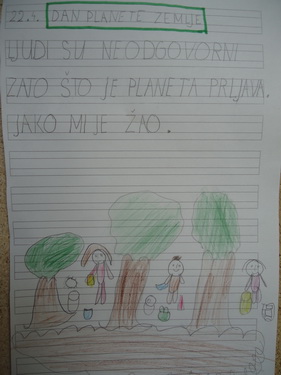 22.4. DAN PLANETE ZEMLJE
LJUDI SU NEODGOVORNI
ZATO ŠTO JE PLANETA PRLJAVA.
JAKO MI JE ŽAO.